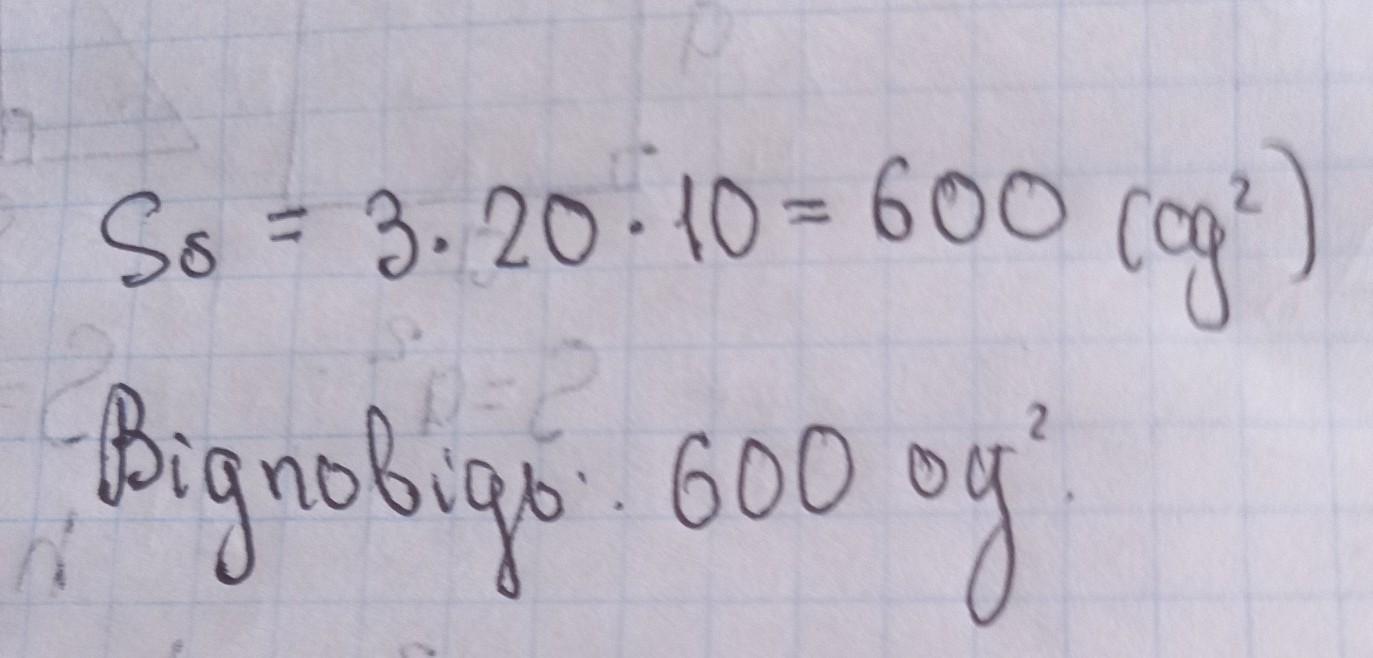 Sб = 3 · 20 · 10 = 600 (од²)
Відповідь: 600 од².